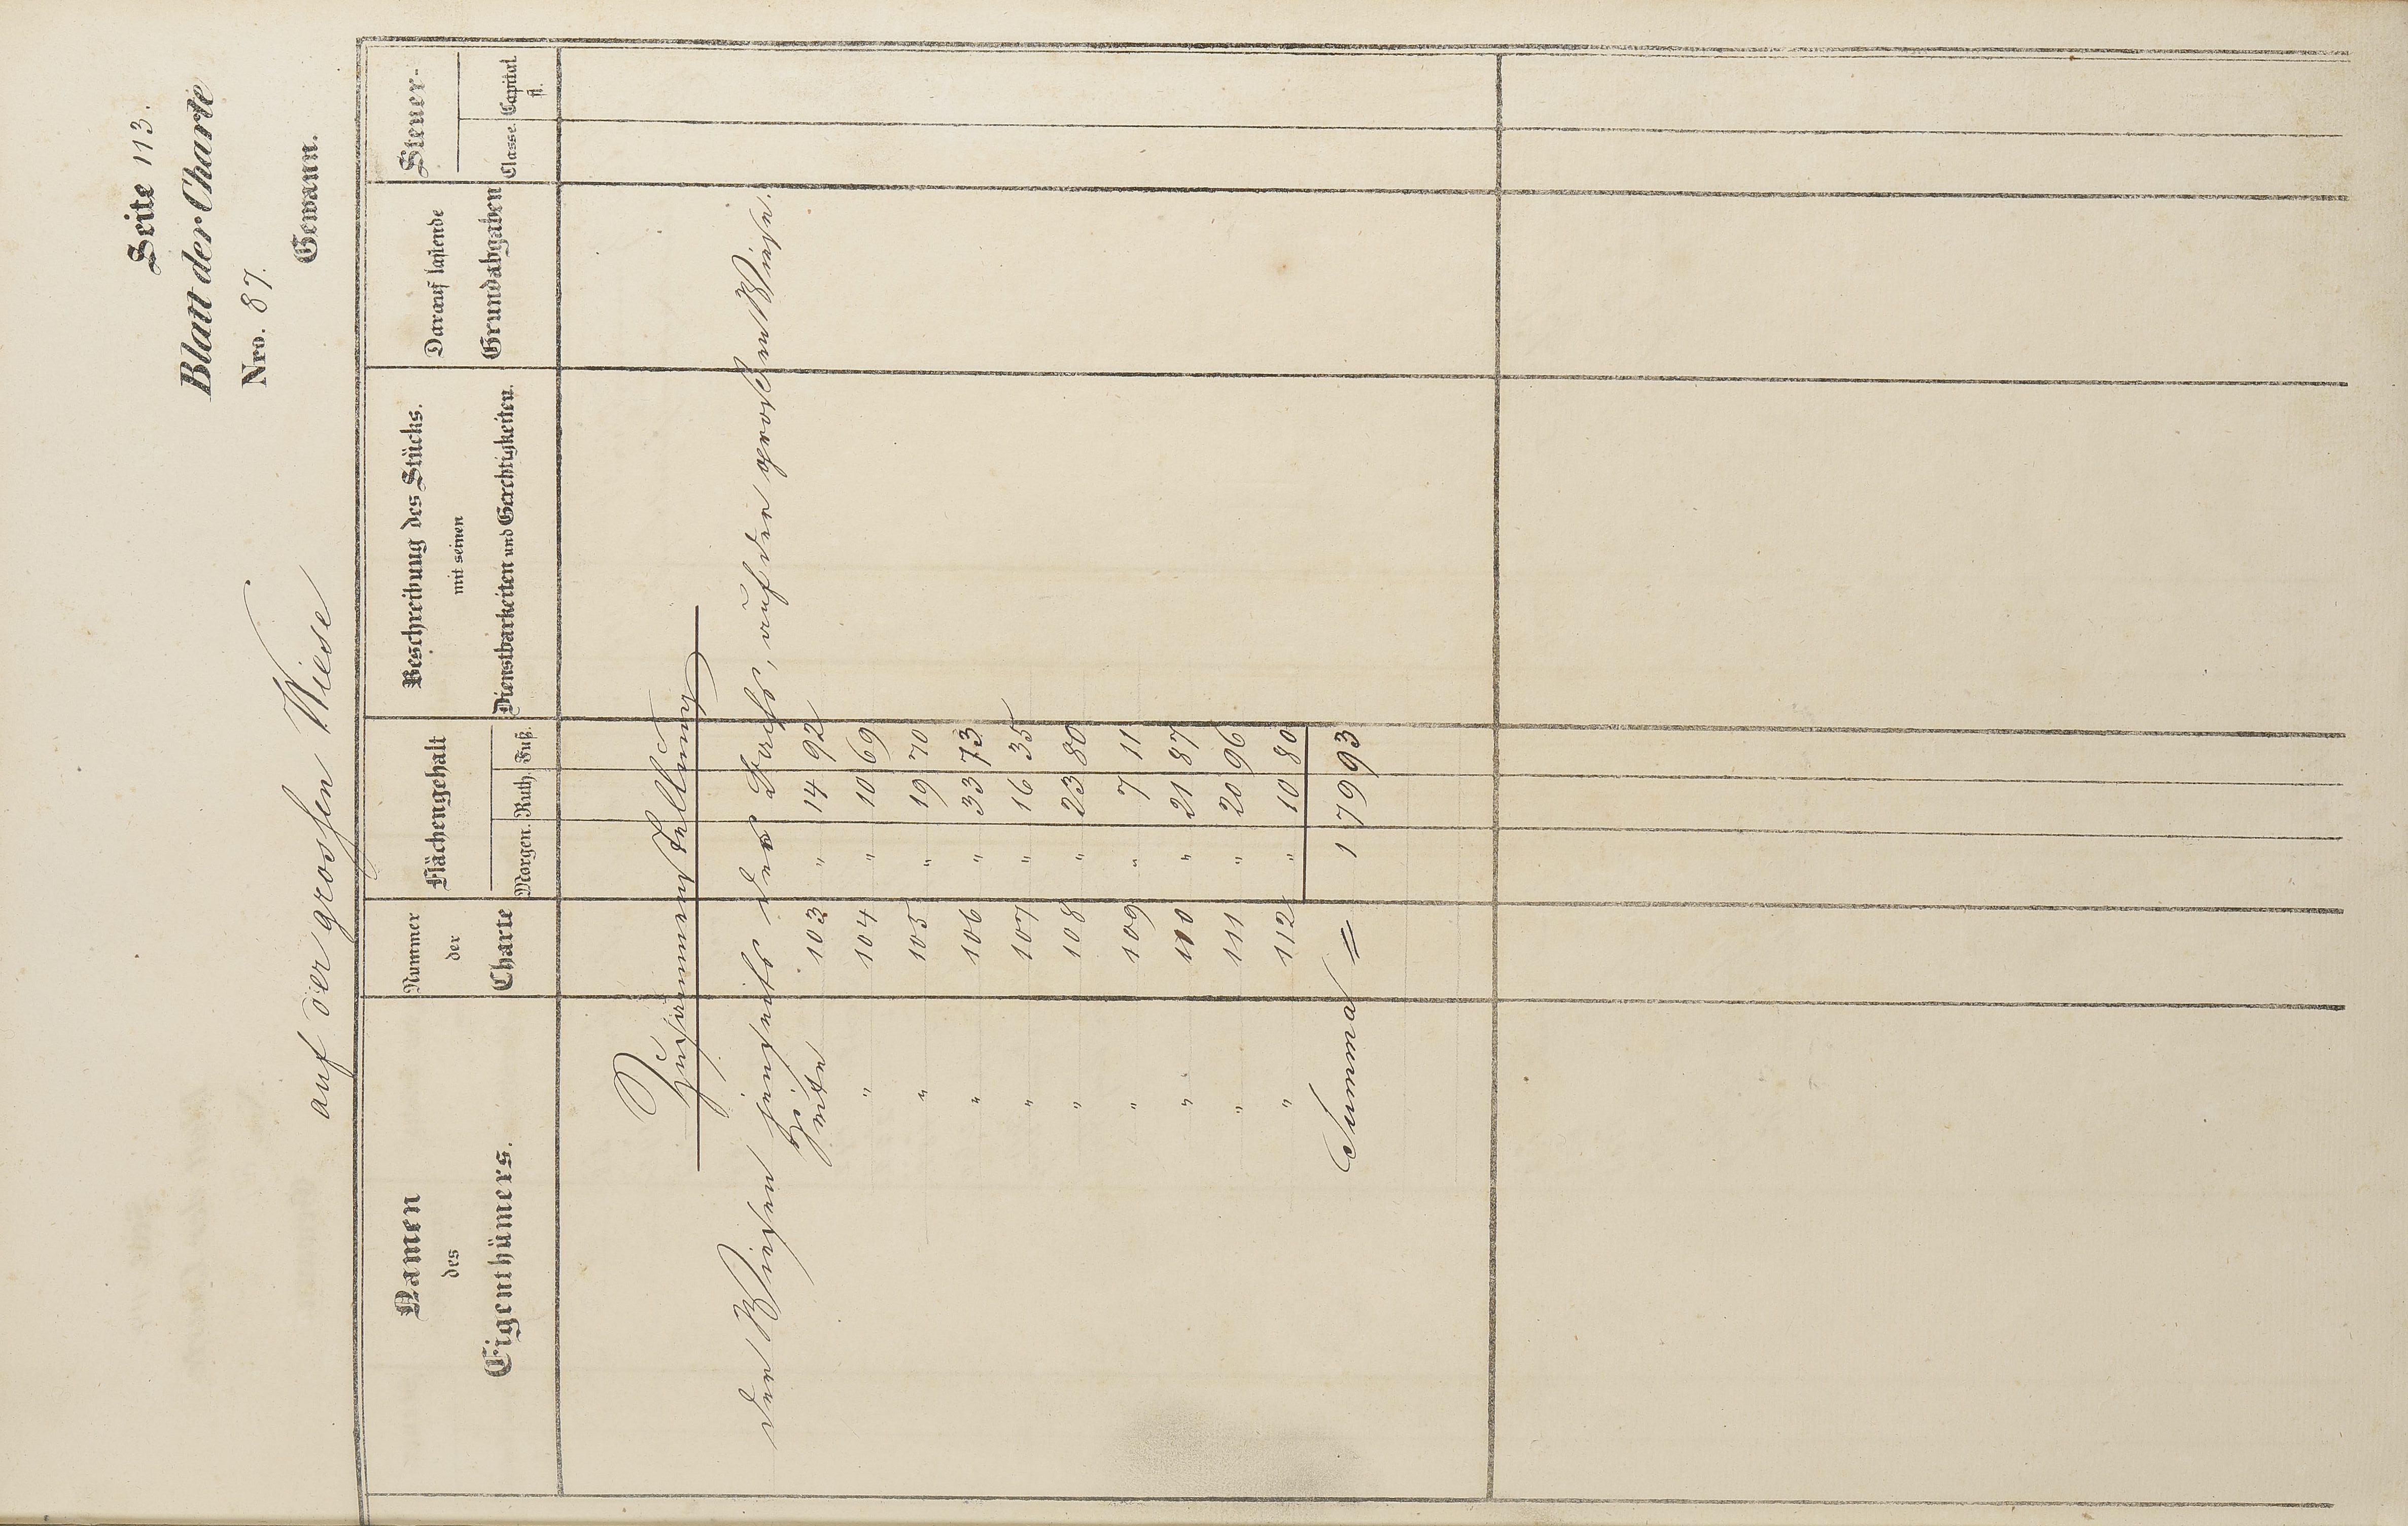 Seite 113.
Blatt der Charte
Nro. 87.
auf der grossen Wiese Gewann.
Namen des Eigenthümers.
Nummer der Charte
Flächengehalt
Morgen. Ruth. Fuß.
Beschreibung des Stücks.
mit seinen
Dienstbarkeiten und Gerechtigkeiten.
Darauf lastende
Grundabgaben
Steuer-
Classe. Capital fl.
Zusammenstellung
der Wiesen jenseits des Bachs, auf der großen Wiese.
Seite 103 " 14 92
" 104 " 10 69
" 105 " 19 70
" 106 " 33 73
" 107 " 16 35
" 108 " 23 80
" 109 " 7 11
" 110 " 21 87
" 111 " 20 96
" 112 " 10 80
Summa = 1 79 93